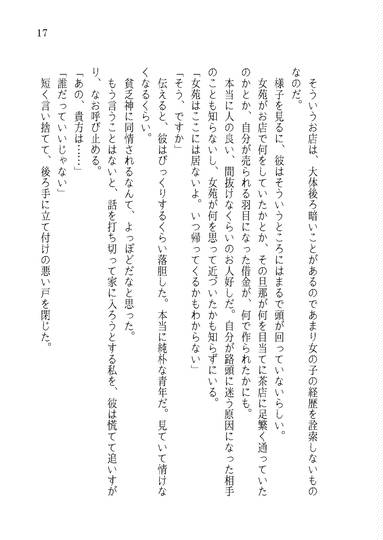 17
そういうお店は、大体後ろ暗いことがあるのであまり女の子の経歴を詮索しないもの
なのだ。
様子を見るに、彼はそういうところにはまるで頭が回っていないらしい。
女苑がお店で何をしていたかとか、その旦那が何を目当てに茶店に足繁く通っていた
のかとか、自分が売られる羽目になった借金が、何で作られたかにも。
本当に人の良い、間抜けなくらいのお人好しだ。自分が路頭に迷う原因になった相手
のことも知らないし、女苑が何を思って近づいたかも知らずにいる。
「女苑はここには居ないよ。いつ帰ってくるかもわからない」
「そう、ですか」
伝えると、彼はびっくりするくらい落胆した。本当に純朴な青年だ。見ていて情けな
くなるくらい。
貧乏神に同情されるなんて、よっぽどだなと思った。
もう言うことはないと、話を打ち切って家に入ろうとする私を、彼は慌てて追いすが
り、なお呼び止める。
「あの、貴方は……」
「誰だっていいじゃない」
短く言い捨てて、後ろ手に立て付けの悪い戸を閉じた。